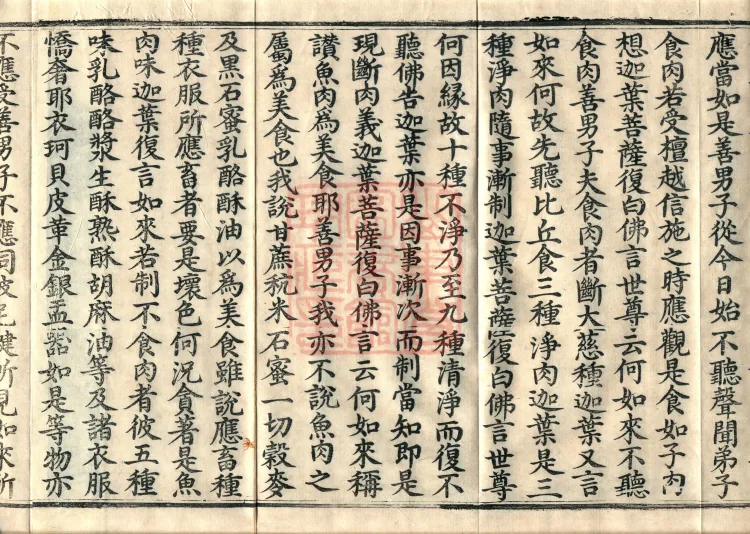 應當如是善男子從今日始不聽聲聞弟子
食肉若受檀越信施之時應觀是食如子肉
想迦葉菩薩復白佛言世尊云何如來不聽
食肉善男子夫食肉者斷大慈種迦葉又言
如來何故先聽比丘食三種淨肉迦葉是三
種淨肉隨事漸制迦葉菩薩復白佛言世尊
何因緣故十種不淨乃至九種清淨而復不
聽佛告迦葉亦是因事漸次而制當知即是
現斷肉義迦葉菩薩復白佛言云何如來稱
讚魚肉為美食耶善男子我亦不說魚肉之
屬為美食也我說甘蔗秔米石蜜一切穀麥
及黑石蜜乳酪酥油以為美食雖說應畜種
種衣服所應畜者要是壞色何況貪著是魚
肉味迦葉復言如來若制不食肉者彼五種
味乳酪酪漿生酥熟酥胡麻油等及諸衣服
憍奢耶衣珂貝皮革金銀盂器如是等物亦
不應受善男子不應同彼尼健所見如來所